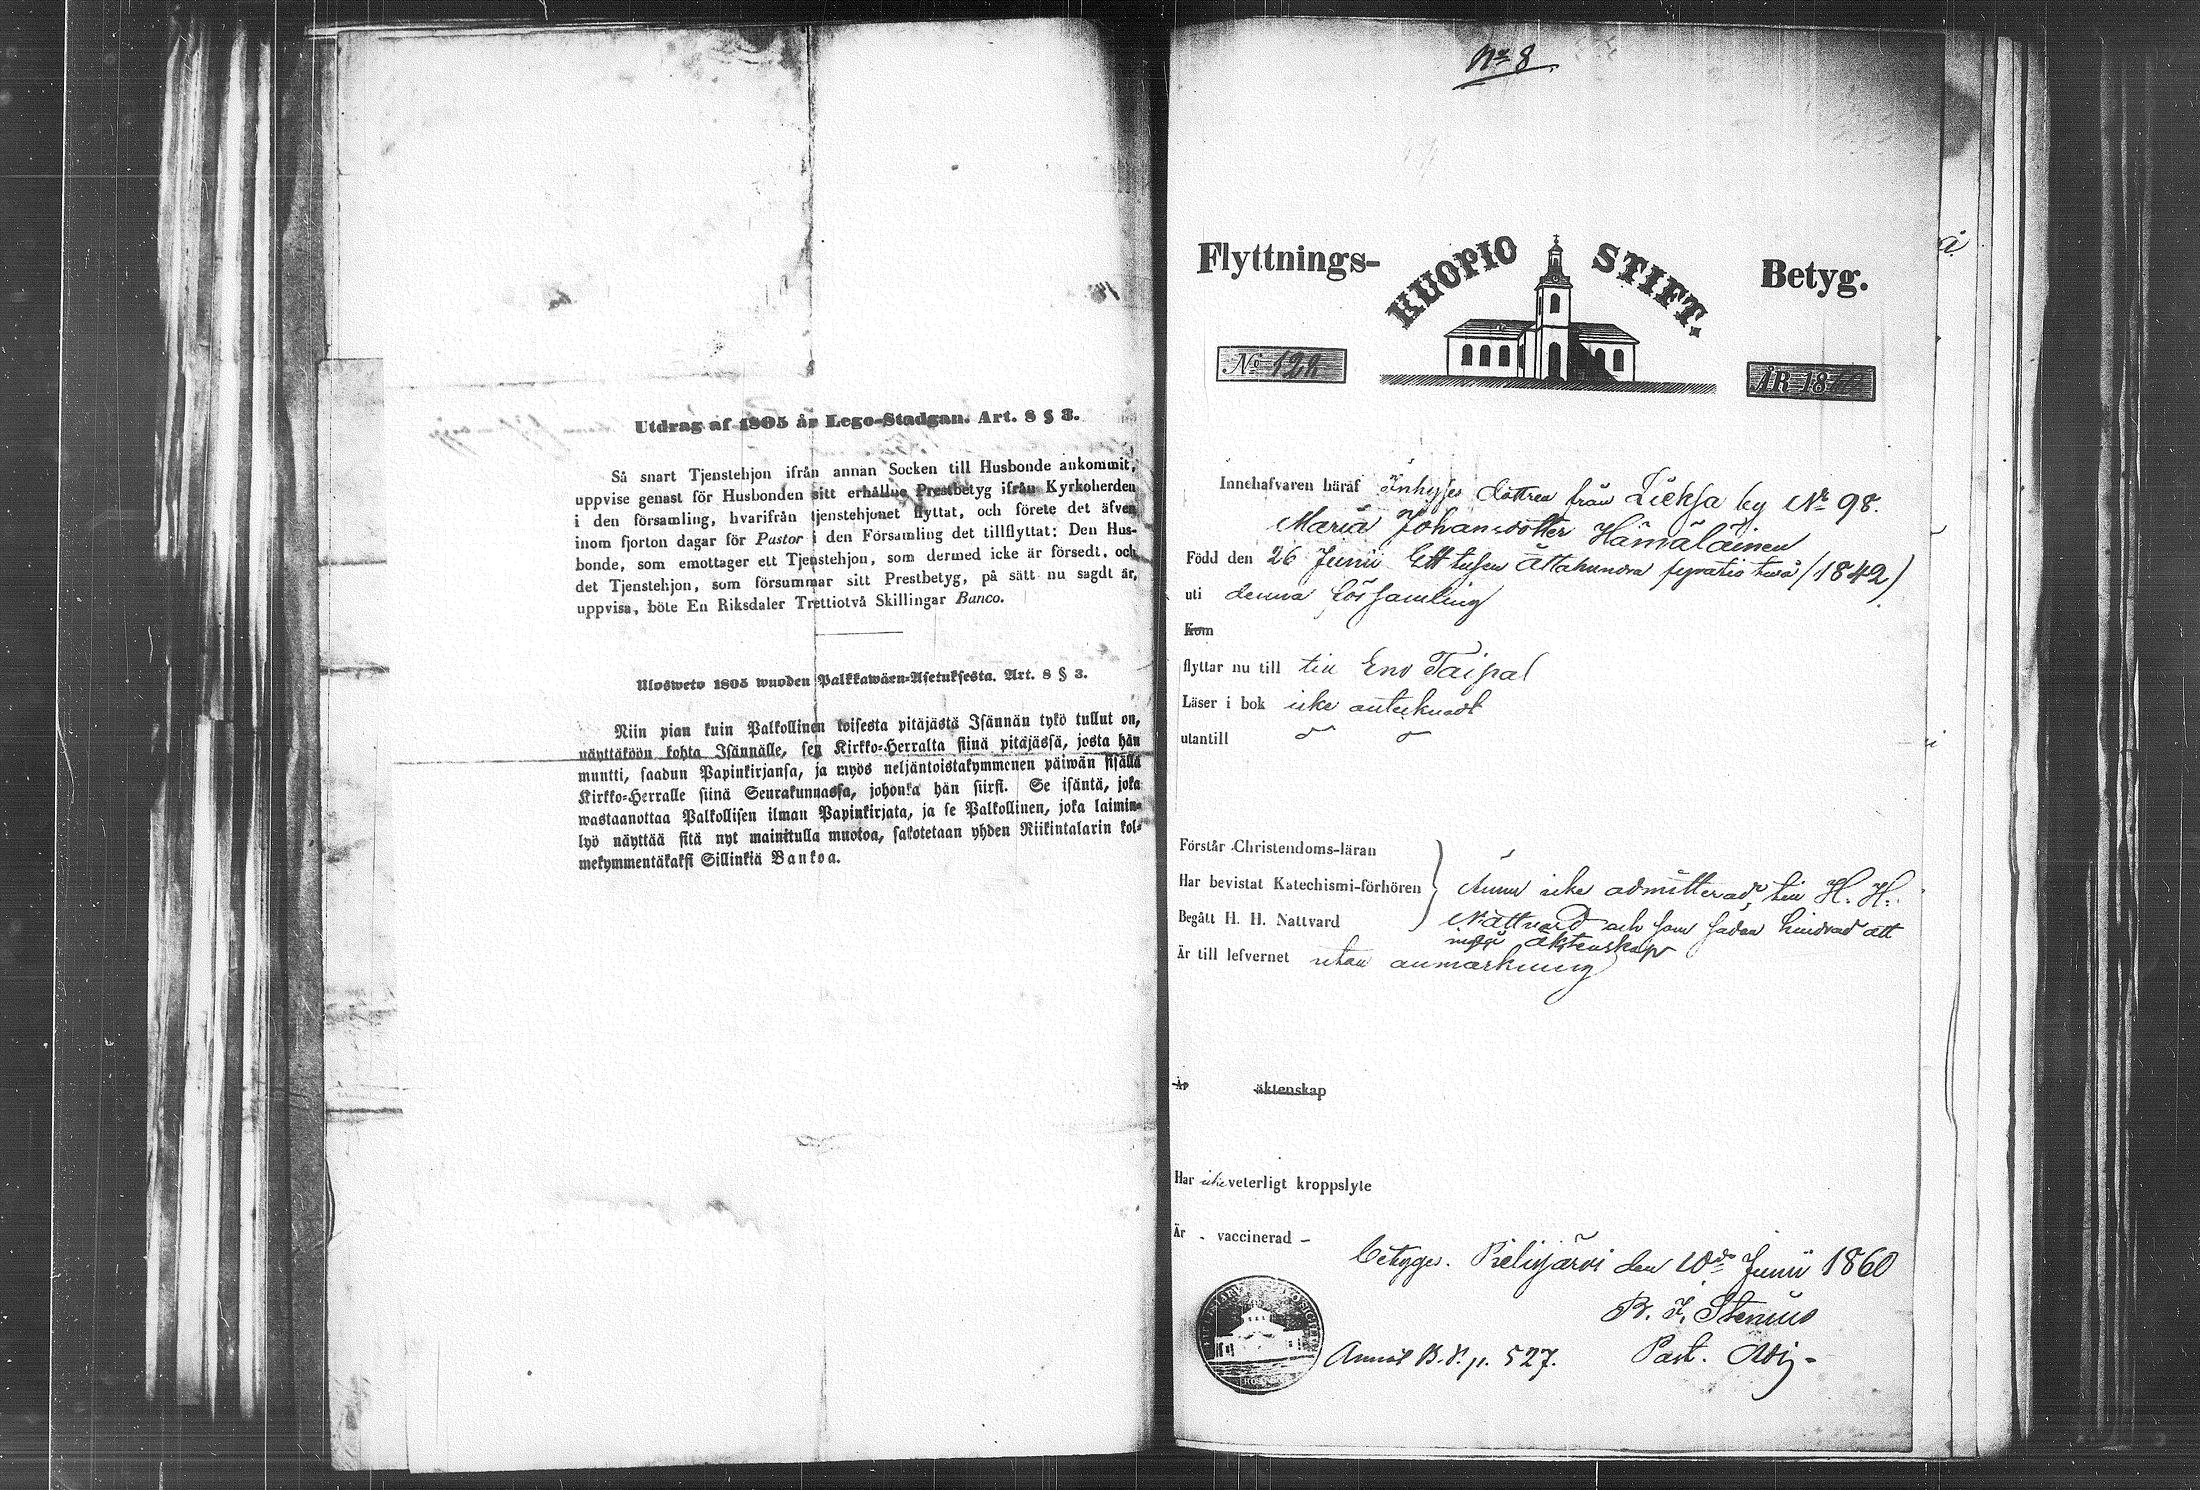 Utdrag af 1805 år Lego-Stadgan. Art. 8 § 3.
Så snart Tjenstehjon ifrån annan Socken till Husbonde ankommit,
uppvise genast för Husbonden sitt erhållne Prestbetyg ifrån Kyrkoherden
i den församling, hvarifrån tjenstehjonet flyttat, och förete det äfven
inom fjorton dagar för Pastor i den Församling det tillflyttat: Den Hus-
bonde, som emottager ett Tjenstehjon, som dermed icke är försedt, och
det Tjenstehjon, som försummar sitt Prestbetyg, på sätt nu sagdt är,
uppvisa, böte En Riksdaler Trettiotvå Skillingar Banco.
Ulosweto 1805 wuoden Palkkawäen-Asetuksesta. Art. 8 § 3.
Niin pian kuin Palkollinen toisesta pitäjästä Isännän tykö tullut on,
näyttäköön kohta Isännälle, sen Kirkko-Herralta siinä pitäjässä, josta hän
muutti, saadun Papinkirjansa, ja myös neljäntoistakymmenen päiwän sisällä
Kirkko-Herralle siinä Seurakunnassa, johonka hän siirsi. Se isäntä, joka
wastaanottaa Palkollisen ilman Papinkirjata, ja se Palkollinen, joka laimin-
lyö näyttää sitä nyt mainitulla muotoa, sakotetaan yhden Riikintalarin kol-
mekymmentäkaksi Sillinkiä Bankoa.
Nr 8
Flyttnings- KUOPIO STIFT. Betyg.
No ÅR 18
Innehafvaren häraf inhyses dottren från Lieksa by Nr 98.
Maria Johansdotter Hämäläinen
Född den 26 Junii Ett tusen Åttahundra fyratio två (1842)
uti denna församling
Kom
flyttar nu till till Eno Taipal
Läser i bok icke antecknadt
utantill
Förstår Christendoms-läran
Har bevistat Katechismi-förhören ännu icke admitterad till H. H.
Begått H. H. Nattvard Nattvard och som sådan hindrad att
ingå äktenskap
Är till lefvernet utan anmärkning
Är äktenskap
Har icke veterligt kroppslyte
Är - vaccinerad -
betygas. Pielisjärvi den 10de Junii 1860
B. J. Stenius
Annot B. S. p. 527. Past. Adj.